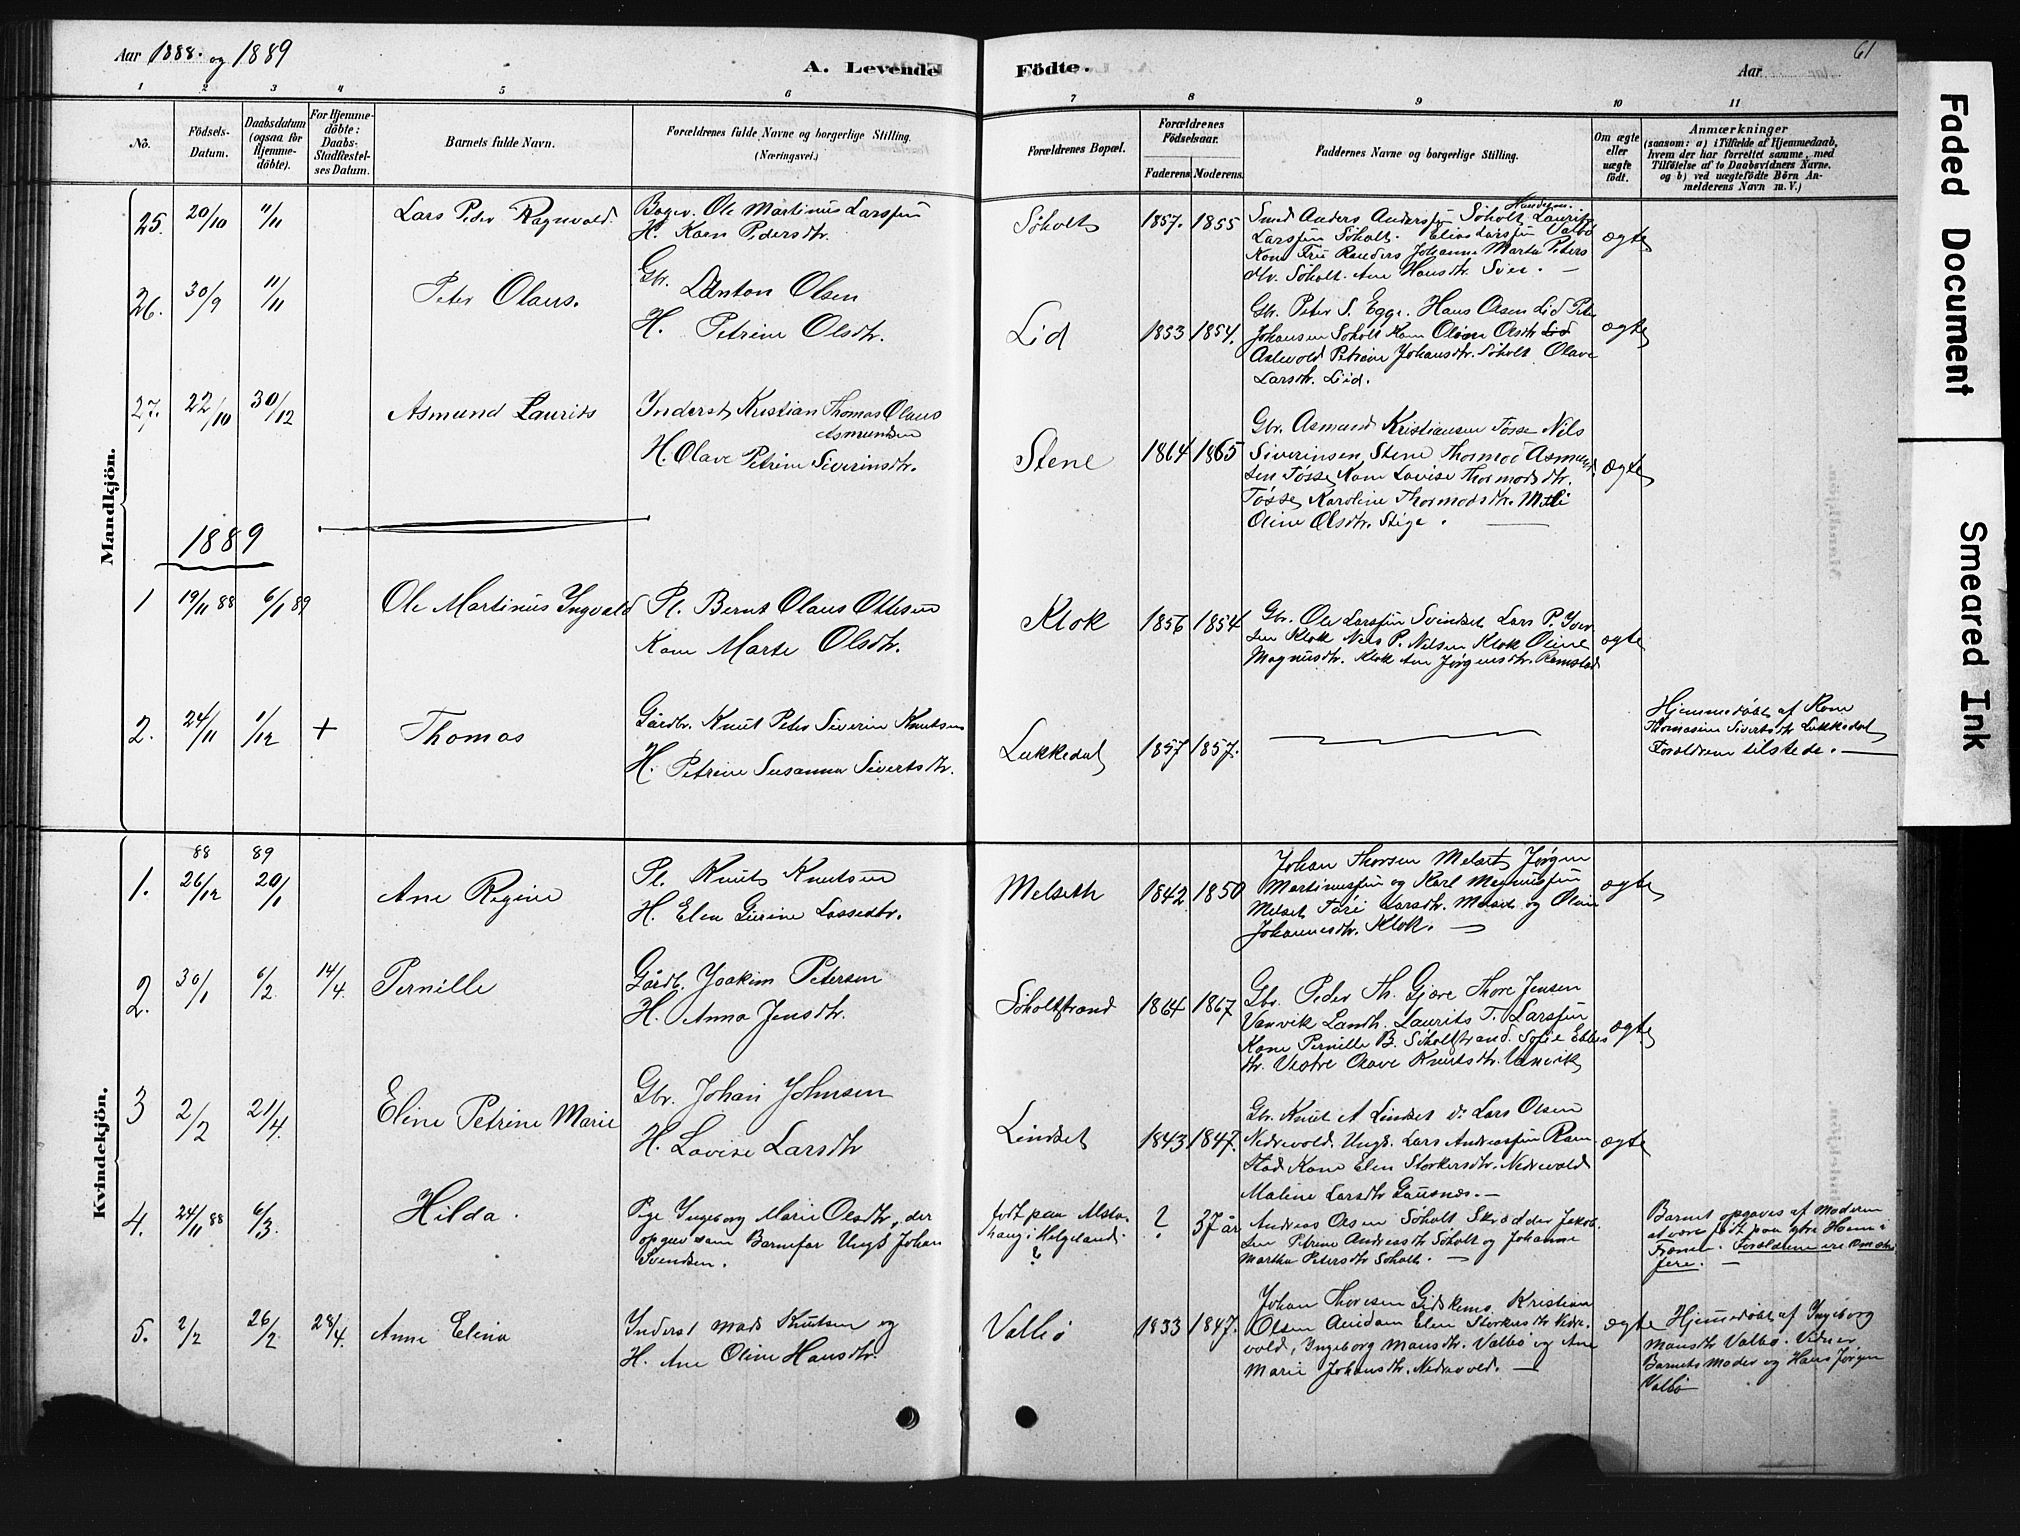 Aar 1888. og 1889
A. Levende
Födte.
Aar
61
1 2 3 4 5 6 7 8 9 10 11
No.
Födsels-Datum.
Daabsdatum (ogsaa for Hjemme-döbte).
For Hjemme-döbte: Daabs-Stadfæstel-ses Datum.
Barnets fulde Navn.
Forældrenes fulde Navne og borgerlige Stilling.
(Næringsvei.)
Forældrenes Bopæl.
Forældrenes Födselsaar.
Faderens Moderens.
Faddernes Navne og borgerlige Stilling.
Om ægte eller uægte födt.
Anmærkninger
(saasom: a) i Tilfælde af Hjemmedaab,
hvem der har forrettet samme, med
Tilföielse af to Daabsvidners Navne.
og b) ved uægtefödte Börn An-
melderens Navn m. V.)
Mandkjön.
25. 20/10 11/11 Lars Peder Ragnvald.
Ole Martinus Larssen
H. Karn Pedersdtr.
Søholt 1857. 1855
Smed Anders Anderssen Søholt Laurits
Larssen Søholt. Elias Larssen Valbø
Johanne Marta Peters
dtr. Søholt. Ane Hansdtr.
ægte
26. 30/9 11/11 Peter Olaus.
Gbr. Anton Olsen
H. Petrine Olsdtr.
Lid 1853 1854.
Gbr. Peter S. Egge. Hans Olsen Lid Peter
Johansen Søholt Kone Oline Olsdtr Lid
Petrine Johansdtr. Søholt Olave
Larsdtr. Liid.
ægte
27. 22/10 30/12 Asmund Laurits
Inderst Kristian Thomas Olaus
Asmundsen
H. Olave Petrine Siverinsdtr.
Stene 1864 1865
Gbr. Asmund Kristiansen Tøsse Nils
Siverinsen Stene Thormod Asmund
sen Tøsse Kone Lovise Thormodsdtr.
Tøsse Karoline Thormodsdtr.
Oline Olsdtr. Stige.
ægte
1889
1 19/11 88 6/1 89 Ole Martinus Ingvald
Pl. Bernt Olaus Ottesen
Kone Marte Olsdtr.
Klok 1856 1854
Gbr. Ole Larssen Svindset Lars P. Iver
sen Klok Nils P. Nilsen Klok Oline
Magnusdtr. Klok Ane Jørgensdtr. Ramstad
ægte
2. 24/11 1/12 + Thomas
Gårdbr. Knut Peter Siverin Knutsen
H. Petrine Susanna Sivertsdtr.
Lukkedal 1857 1857.
Hjemmedøbt af Kone
Thomasine Sivertsdtr Lukkedal
Forældrene tilstede.
Kvindekjön.
88 89
1. 26/12 20/1 Ane Regine
Pl. Knut Knutsen
H. Elen Gurine Lassedtr.
Melseth 1842 1850
Johan Thorsen Melset Jørgen
Martinussen og Karl Magnussen
Melset Larsdtr. Melset og Oline
Johannesdtr. Klok.
ægte
2. 30/1 6/2 14/4. Pernille
Gårdb. Joakim Petersen
H. Anna Jensdtr.
Søholtstrand 1864 1867
Gbr. Peder Th. Gjøre Thore Jensen
Vanvik Landh. Laurits T. Larssen
Kone Pernille B. Søholtstrand. Sofie Ebbes
dtr. Vestre Olave Knutsdtr. Vanvik
ægte
3 2/2 21/4. Eline Petrine Marie
Gbr. Johan Johnsen
H. Lovise Larsdtr
Lindset 1843 1847.
Gbr. Knut A Lindset Lars Olsen
Nedrevold. Ungk. Lars Andreassen Ram
stad Kone Elen Storkersdtr. Nedrevold
Maline Larsdtr Gausnes.
ægte
4. 24/11 88 6/3. Hilda.
Pige Ingeborg Marie Olsdtr, der
opgiver som Barnefar Ungk Johan
Svendsen.
født paa Alsta-
haug i Helgeland
?
? 37 år
Andreas Olsen Søholt Skrædder Jakob-
sen Petrine Andreasdtr Søholt og Johanne
Martha Petersdtr Søholt.
Barnet opgives af Moderen
at være født paa ytre Havn i
Forældrene ere Om-
5. 2/2 26/2 28/4. Anne Elina
Inderst Mads Knutsen og
H. Ane Oline Hansdtr.
Valbø 1833 1847.
Johan Thoresen Gidskems. Kristian
Olsen Elen Storkersdtr Nedre-
vold, Ingeborg Mansdtr. Valbø og Ane
Marie Johansdtr. Nedrevold.
ægte
Hjemmedøbt af Ingeborg
Mansdtr Valbø. Vidner
Barnets Moder og Hans Jørgen
Valbø
Faded Document
Smeared Ink